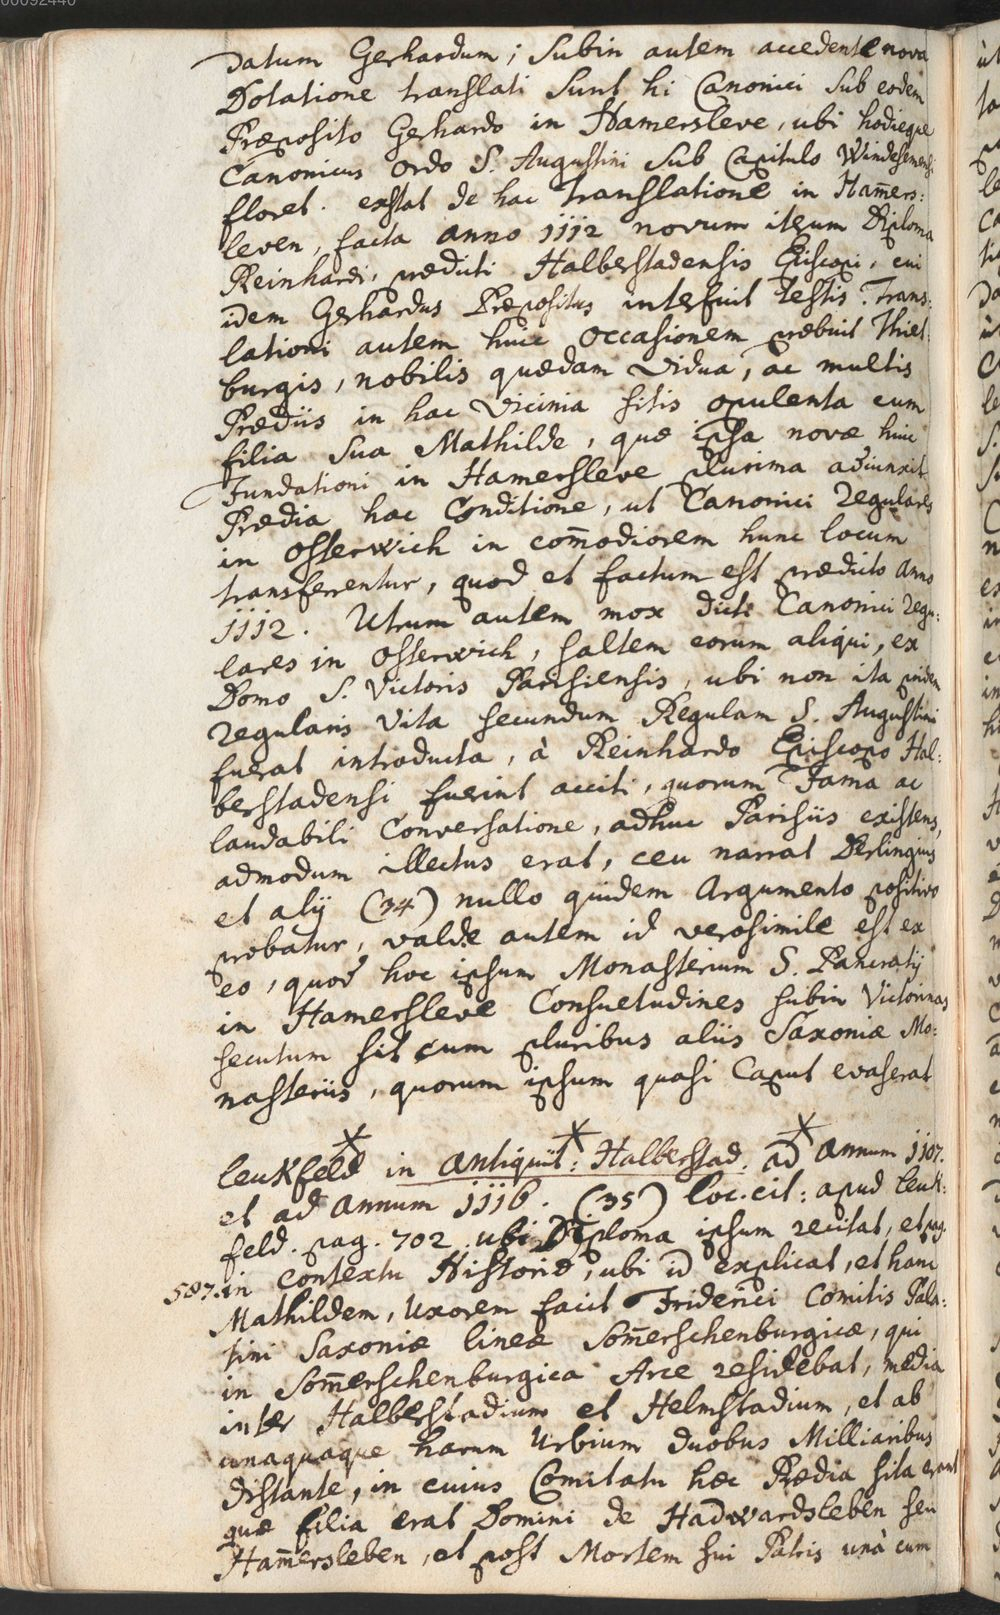 00092440
datum Gerhardum; subin autem accedente nova
Dotatione translati sunt hi Canonici sub eodem
Præposito Gerhardo in Hamersleve, ubi hodieque
Canonicus ordo S. Augustini sub Capitulo Windesemensi
floret. exstat de hac translatione in Ham̄ers:
leven, facta anno 1112 novum iterum Diploma
Reinhardi, prædicti Halberstadensis Episcopi, cui
idem Gerhardus Præpositus interfuit testis. Trans:
lationi autem huic occasionem præbuit Thiet:
burgis, nobilis quædam Vidua, ac multis
Prædiis in hac Vicinia sitis opulenta cum
filia sua Mathilde, quæ ipsa novæ huic
Fundationi in Hamersleve plurima adiunxit
Prædia hac Conditione, ut Canonici Regulares
in Osterwich in com̄odiorem hunc locum
transferrentur, quod et factum est prædicto anno
1112. Utrum autem mox dicti Canonici Regu:
lares in Osterwich, saltem eorum aliqui, ex
Domo S. Victoris Parisiensis, ubi non ita pridem
regularis Vita secundum Regulam S. Augustini
fuerat introducta, à Reinhardo Episcopo Hal:
berstadensi fuerint acciti, quorum Fama ac
laudabili Conversatione, adhuc Parisiis existens,
admodum illectus erat, ceu narrat Derlingius
et alij (34) nullo quidem Argumento positivo
probatur, valde autem id verosimile est ex
eo, quod hoc ipsum Monasterium S. Pancratij
in Hamersleve Consuetudines subin Victorinas
secutum sit cum pluribus aliis Saxoniæ Mo:
nasteriis, quorum ipsum quasi Caput evaserat
Leukfeld in Antiquit: Halberstad. ad Annum 1107.
et ad Annum 1116. (35) loc. cit: apud Leuk:
feld. pag. 702. ubi Diploma ipsum recitat, et pag.
587. in contextu Historiæ, ubi id explicat, et hanc
Mathildem, Uxorem facit Friderici Comitis Pala:
tini Saxoniæ lineæ Som̄erschenburgicæ, qui
in Som̄erschenburgica Arce residebat, media
inter Halberstadium et Helmstadium, et ab
unaquaque harum Urbium duobus Milliaribus
distante, in cuius Comitatu hæc Prædia sita erant
quæ filia erat Domini de Hadwardsleben seu
Ham̄ersleben, et post Mortem sui Patris unà cum